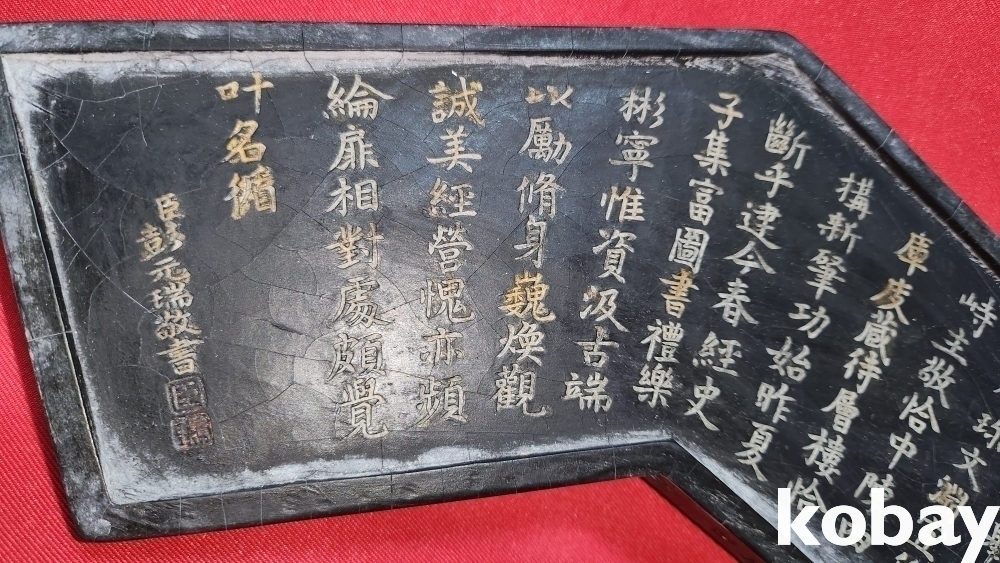 文淵
峙主敬恰中陳
庫庋藏待層樓恰
構新肇功始昨夏
斷乎建今春經史
子集富圖書禮樂
彬寧惟資汲古端
以勵脩身巍煥觀
誠美經營愧亦頻
綸扉相對處頗覺
叶名循
臣彭元瑞敬書
kobay